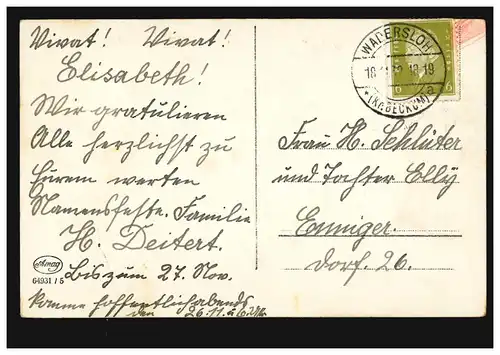 Vivat! Vivat!
Elisabeth!
Wir gratulieren
Alle herzlichst zu
Eurem werten
Namensfeste. Familie
H. Deitert.
Bis zum 27. Nov.
komme hoffentlich abends
den 26.11.
Amag
64931/5
WADERSLOH
18 19
a
(KR. BECKUM)
6
Frau H. Schlüter
und Tochter Elly
Enniger.
Dorf. 26.